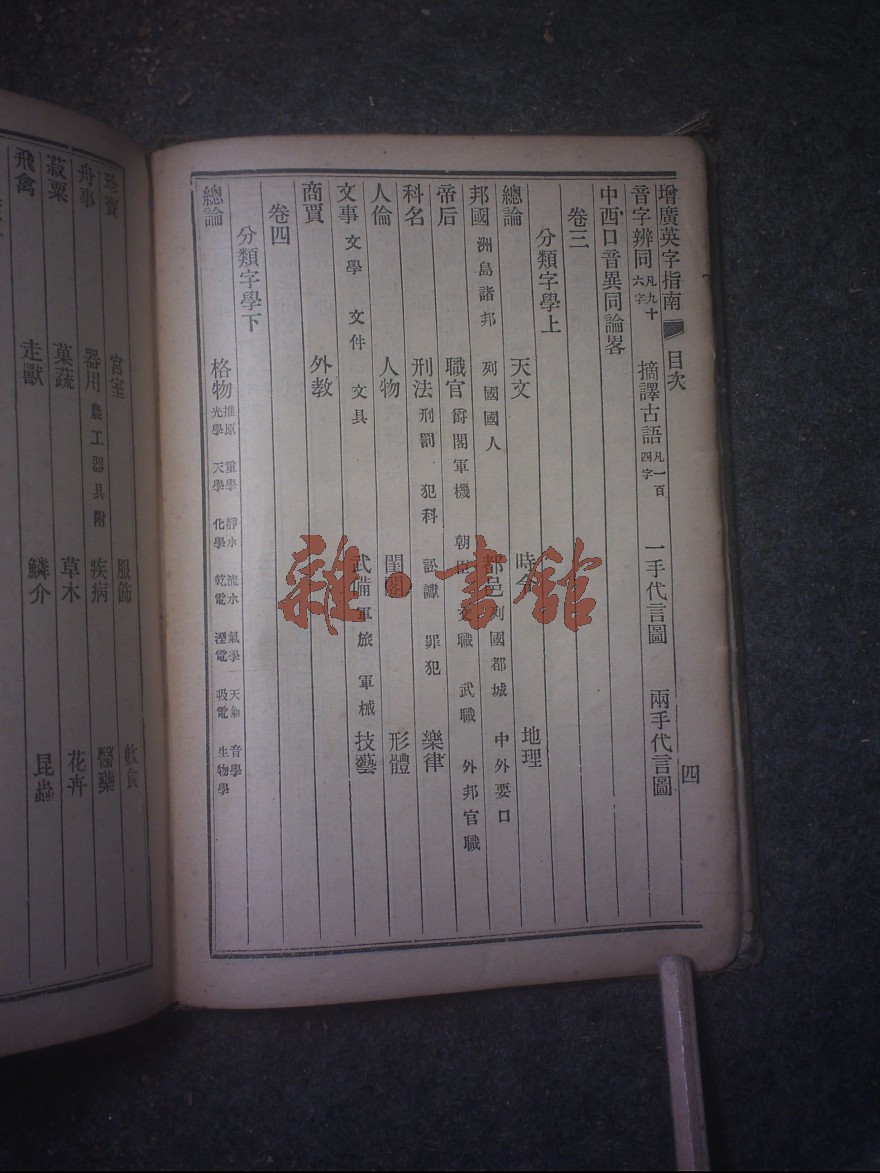 增廣英字指南 目次 四
音字辨同 凡九十六字 摘譯古語 凡一百四字 一手代言圖 兩手代言圖
中西口音異同論畧
卷三
分類字學上
總論 天文 時令 地理
邦國 洲島諸邦 列國國人 都邑 列國都城 中外要口
帝后 職官 爵閣軍機 朝 文職 武職 外邦官職
科名 刑法 刑罰 犯科 訟讞 罪犯 樂律
人倫 人物 閨閣 形體
文事 文學 文件 文具 武備 軍旅 軍械 技藝
商賈 外教
卷四
分類字學下
總論 格物 推原 重學 靜水 流水 氣學 天氣 音學 光學 天學 化學 乾電 溼電 吸電 生物學
珍寶 宮室 服飾 飲食
舟事 器用 農工器具附 疾病 醫藥
菽粟 菓蔬 草木 花卉
飛禽 走獸 鱗介 昆蟲
雜·書館